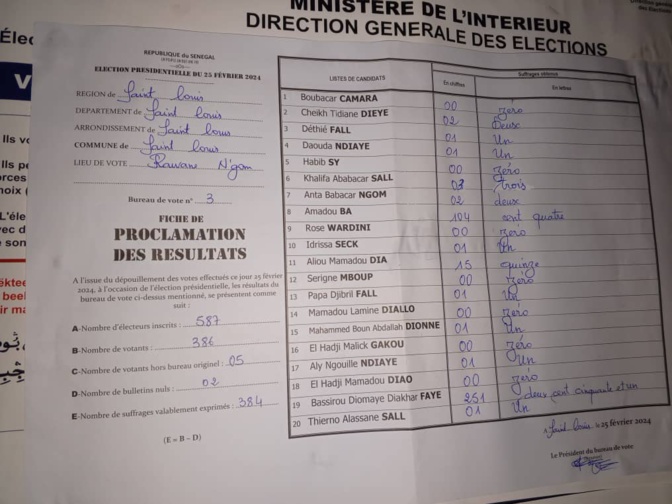 MINISTERE DE L'INTERIEUR
DIRECTION GENERALE DES ELECTIONS
REPUBLIQUE DU SENEGAL
ELECTION PRESIDENTIELLE DU 25 FÉVRIER 2024
REGION DE Saint Louis
DEPARTEMENT DE Saint Louis
ARRONDISSEMENT DE Saint Louis
COMMUNE DE Saint Louis
LIEU DE VOTE Rawane N'gom
Bureau de vote n° 3
FICHE DE
PROCLAMATION
DES RESULTATS
A l'issue du dépouillement des votes effectués ce jour 25 février
2024, à l'occasion de l'élection présidentielle, les résultats du
bureau de vote ci-dessus mentionné, se présentent comme
suit :
A-Nombre d'électeurs inscrits : 587
B-Nombre de votants : 386
C-Nombre de votants hors bureau originel : 05
D-Nombre de bulletins nuls : 02
E-Nombre de suffrages valablement exprimés : 384
(E = B – D)
LISTES DE CANDIDATS
Suffrages obtenus
En chiffres En lettres
1 Boubacar CAMARA 00 zéro
2 Cheikh Tidiane DIEYE 02 Deux
3 Déthié FALL 01 Un
4 Daouda NDIAYE 01 Un
5 Habib SY 00 zéro
6 Khalifa Ababacar SALL 03 trois
7 Anta Babacar NGOM 02 deux
8 Amadou BA 104 cent quatre
9 Rose WARDINI 00 zéro
10 Idrissa SECK 01 Un
11 Aliou Mamadou DIA 15 quinze
12 Serigne MBOUP 00 zéro
13 Papa Djibril FALL 01 Un
14 Mamadou Lamine DIALLO 00 zéro
15 Mahammed Boun Abdallah DIONNE 01 Un
16 El Hadji Malick GAKOU 00 zéro
17 Aly Ngouille NDIAYE 01 Un
18 El Hadji Mamadou DIAO 00 zéro
19 Bassirou Diomaye Diakhar FAYE 251 deux cent cinquante et un
20 Thierno Alassane SALL 01 Un
A Saint Louis 25 février 2024
Le Président du bureau de vote